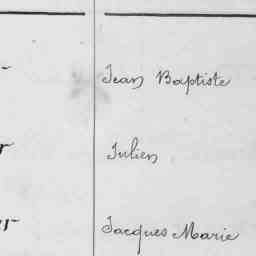 Jean Baptiste
Julien
Jacques Marie